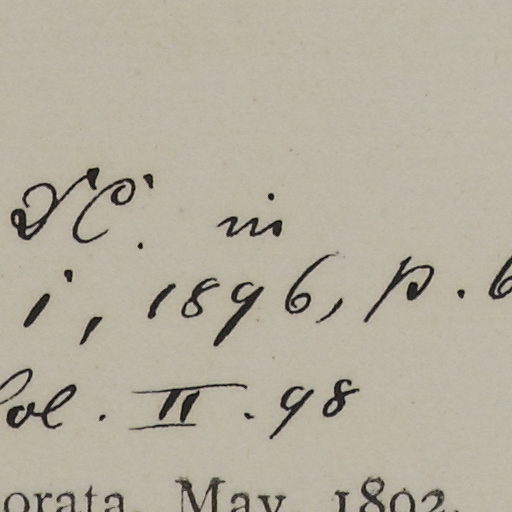 DC. in
i, 1896, p. 6
ol. II. 98
orata. May, 1892.